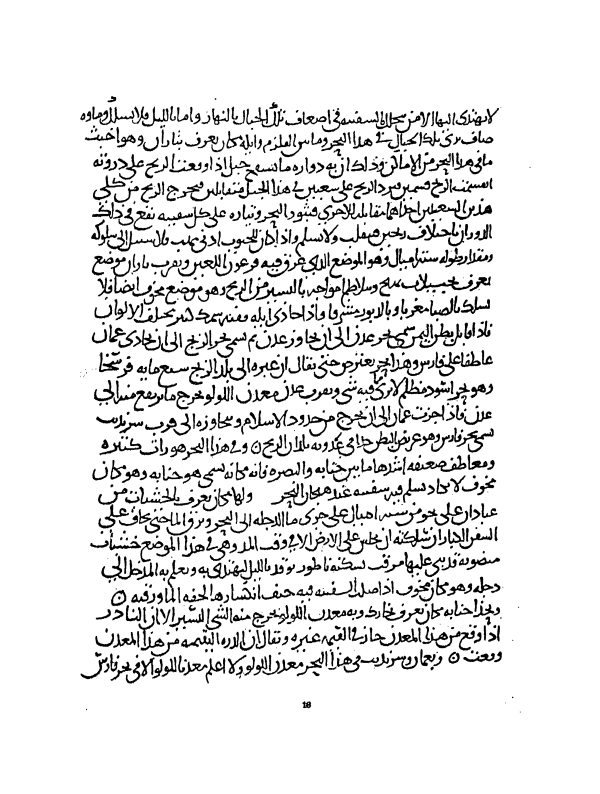 لا يهتدى اليها الا من سلك السفينه فى اضعاف تلك الجبال بالنهار واما بالليل فلا يسلك وماوه
صاف ترى تلك الجبال فى هذا البحر وما بين القلزم وايله مكان يعرف بتاران وهو اخبث
ما فى هذا البحر من الاماكن وذلك ان به دواره ما بسفح جبل اذا وقعت الريح على ذروته
انقسمت الريح قسمين فيرد الريح على شعبين فى هذا الجبل متقابلين فيخرج الريح من كلى
هذين الشعبين احداهما مقابله للاخرى فيثور البحر وتياره على كل سفينه تقع فى ذلك
الدوران باختلاف ريحين فينقلب ولا تسلم واذا كان للجنوب ادنى مهب فلا سبيل الى سلوكه
ومقدار طوله سته اميال وهو الموضع الذى غرق فيه فرعون اللعين وبقرب تاران موضع
يعرف بجبيلات يهيج وتتلاطم امواجه باليسير من الريح وهو موضع مخوف ايضا فلا
يسلك بالصبا مغربا وبالدبور مشرقا واذا حاذى ايله ففيه سمك كثير مختلف الالوان
فاذا قابل بطن اليمن سمى بحر عدن الى ان جاوز عدن ثم سمى بحر الزنج الى ان يحاذى عمان
عاطفا على فارس وهذا بحر يعترض حتى يقال ان عبره الى بلد الزنج سبع مايه فرسخا
وهو بحر اسود مظلم لا يرى فيه شى وبقرب عدن معدن اللولو يخرج ما يرتفع منه الى
عدن فاذا اجزت عمان الى ان يخرج من حدود الاسلام ويجاوزه الى قرب سرنديب
يسمى بحر فارس وهو عريض البطن جدا فى عدوته بلدان الزنج ۝ وفى هذا البحر هورات كثيره
ومعاطف صعبه اشدها ما بين جنابه والبصره فانه مكان يسمى هور جنابه وهو مكان
مخوف لا تكاد تسلم فيه سفينه عند هيجان البحر ولها مكان يعرف بالخشبات من
عبادان على نحو من سته اميال على جرى ما الدجله الى البحر ويرق الما حتى يخاف على
السفن الكبار ان سلكته ان تجلس على الارض الا فى وقت المد وهى فى هذا الموضع خشبات
منصوبه قد بنى عليها مرقب يسكنه ناطور يوقد بالليل ليهتدى به ويعلم به المدخل الى
دجله وهو مكان مخوف اذا ضلت السفينه فيه خيف انكسارها لخفه الما ورقته ۝
وبحذا جنابه مكان يعرف بخارك وبه معدن اللولو يخرج منه الشى اليسير الا ان النادر
اذا وقع من هذا المعدن جاز فى القيمه غيره ويقال ان الدره اليتيمه من هذا المعدن
وقعت ۝ وبعمان وسرنديب فى هذا البحر معدن اللولو ولا اعلم معدنا للولو الا فى بحر فارس
18